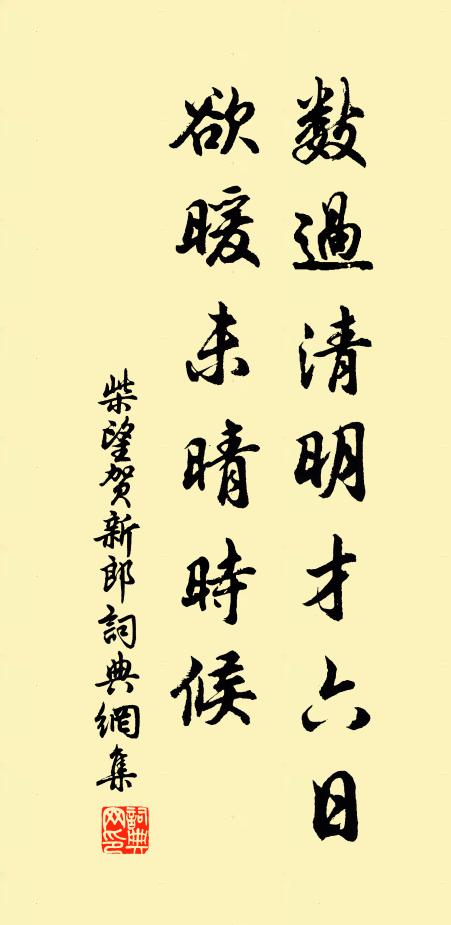 數過清明才六日
欲暖未晴時候
柴望賀新郎詞典網集
詞典網印